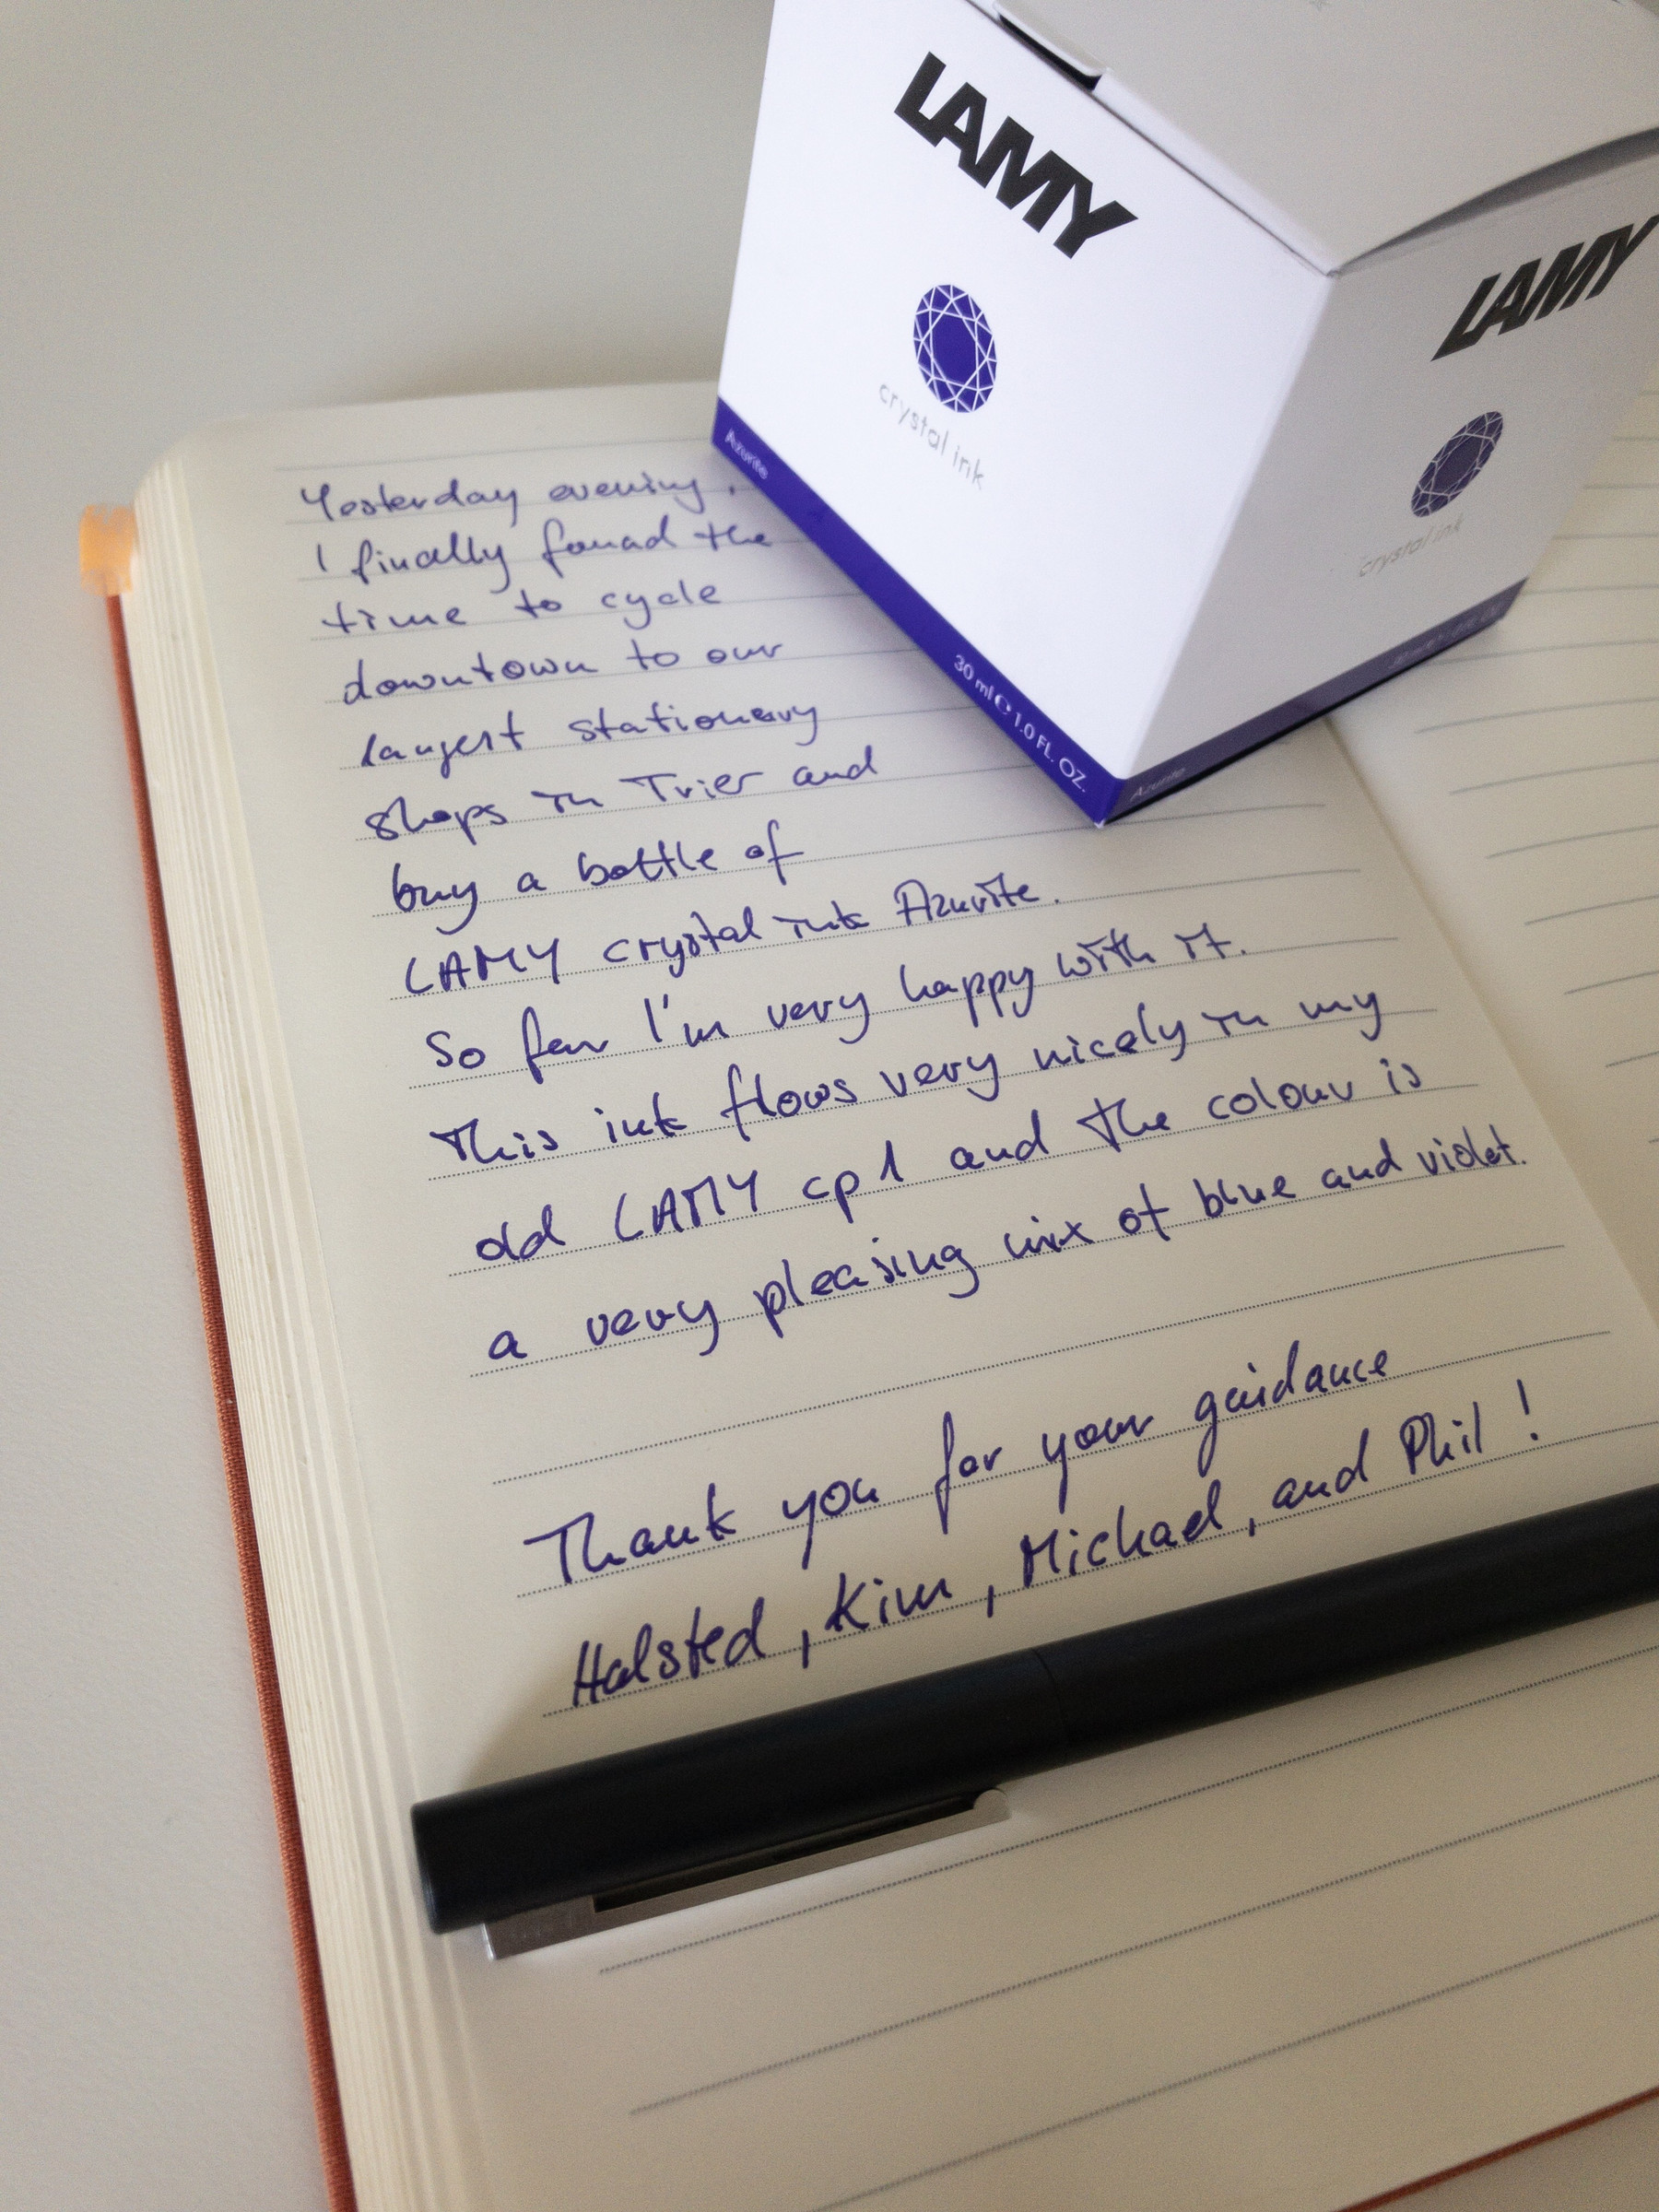 LAMY
crystal ink
Azurite
30 ml e 1.0 FL. OZ.
LAMY
crystal ink
Azurite
Yesterday evening,
I finally found the
time to cycle
downtown to our
largest stationery
shops in Trier and
buy a bottle of
LAMY crystal ink Azurite.
So far I'm very happy with it.
This ink flows very nicely in my
old LAMY cp1 and the colour is
a very pleasing mix of blue and violet.
Thank you for your guidance
Halsted, Kim, Michael, and Phil!